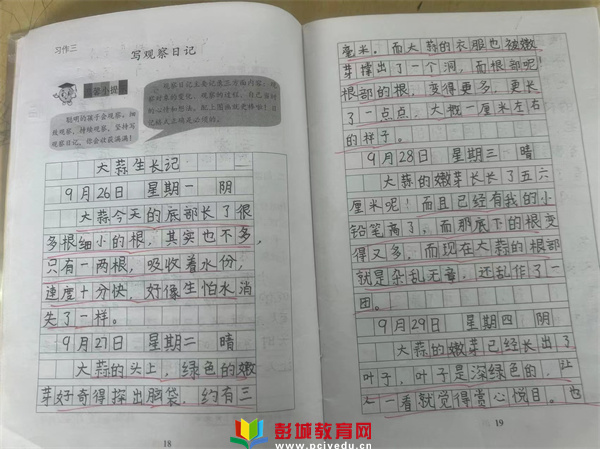 习作三
写观察日记
聪明的孩子会观察。细
致观察，持续观察，坚持写
观察日记，你会收获满满！
大蒜生长记
9月26日 星期一 阴
大蒜今天的底部长了很
多根细小的根，其实也不多，
只有一两根，吸收着水份，
速度十分快，好像生怕水消
失了一样。
9月27日 星期二 晴
大蒜的头上，绿色的嫩
芽好奇得探出脑袋，约有三
18
毫米。而大蒜的衣服也被嫩
芽撑出了一个洞，而根部呢！
根部的根，变得更多，更长
了一点点，大概一厘米左右
的样子。
9月28日 星期三 晴
大蒜的嫩芽长长了五六
厘米呢！而且已经有我的小
铅笔高了，而那底下的根变
得又多，而现在大蒜的根部
就是杂乱无章，还乱作了一
团。
9月29日 星期四 阴
大蒜的嫩芽已经长出了
叶子，叶子是深绿色的，让
人一看就觉得赏心悦目。也
19
彭城教育网
www.pcjyedu.cn